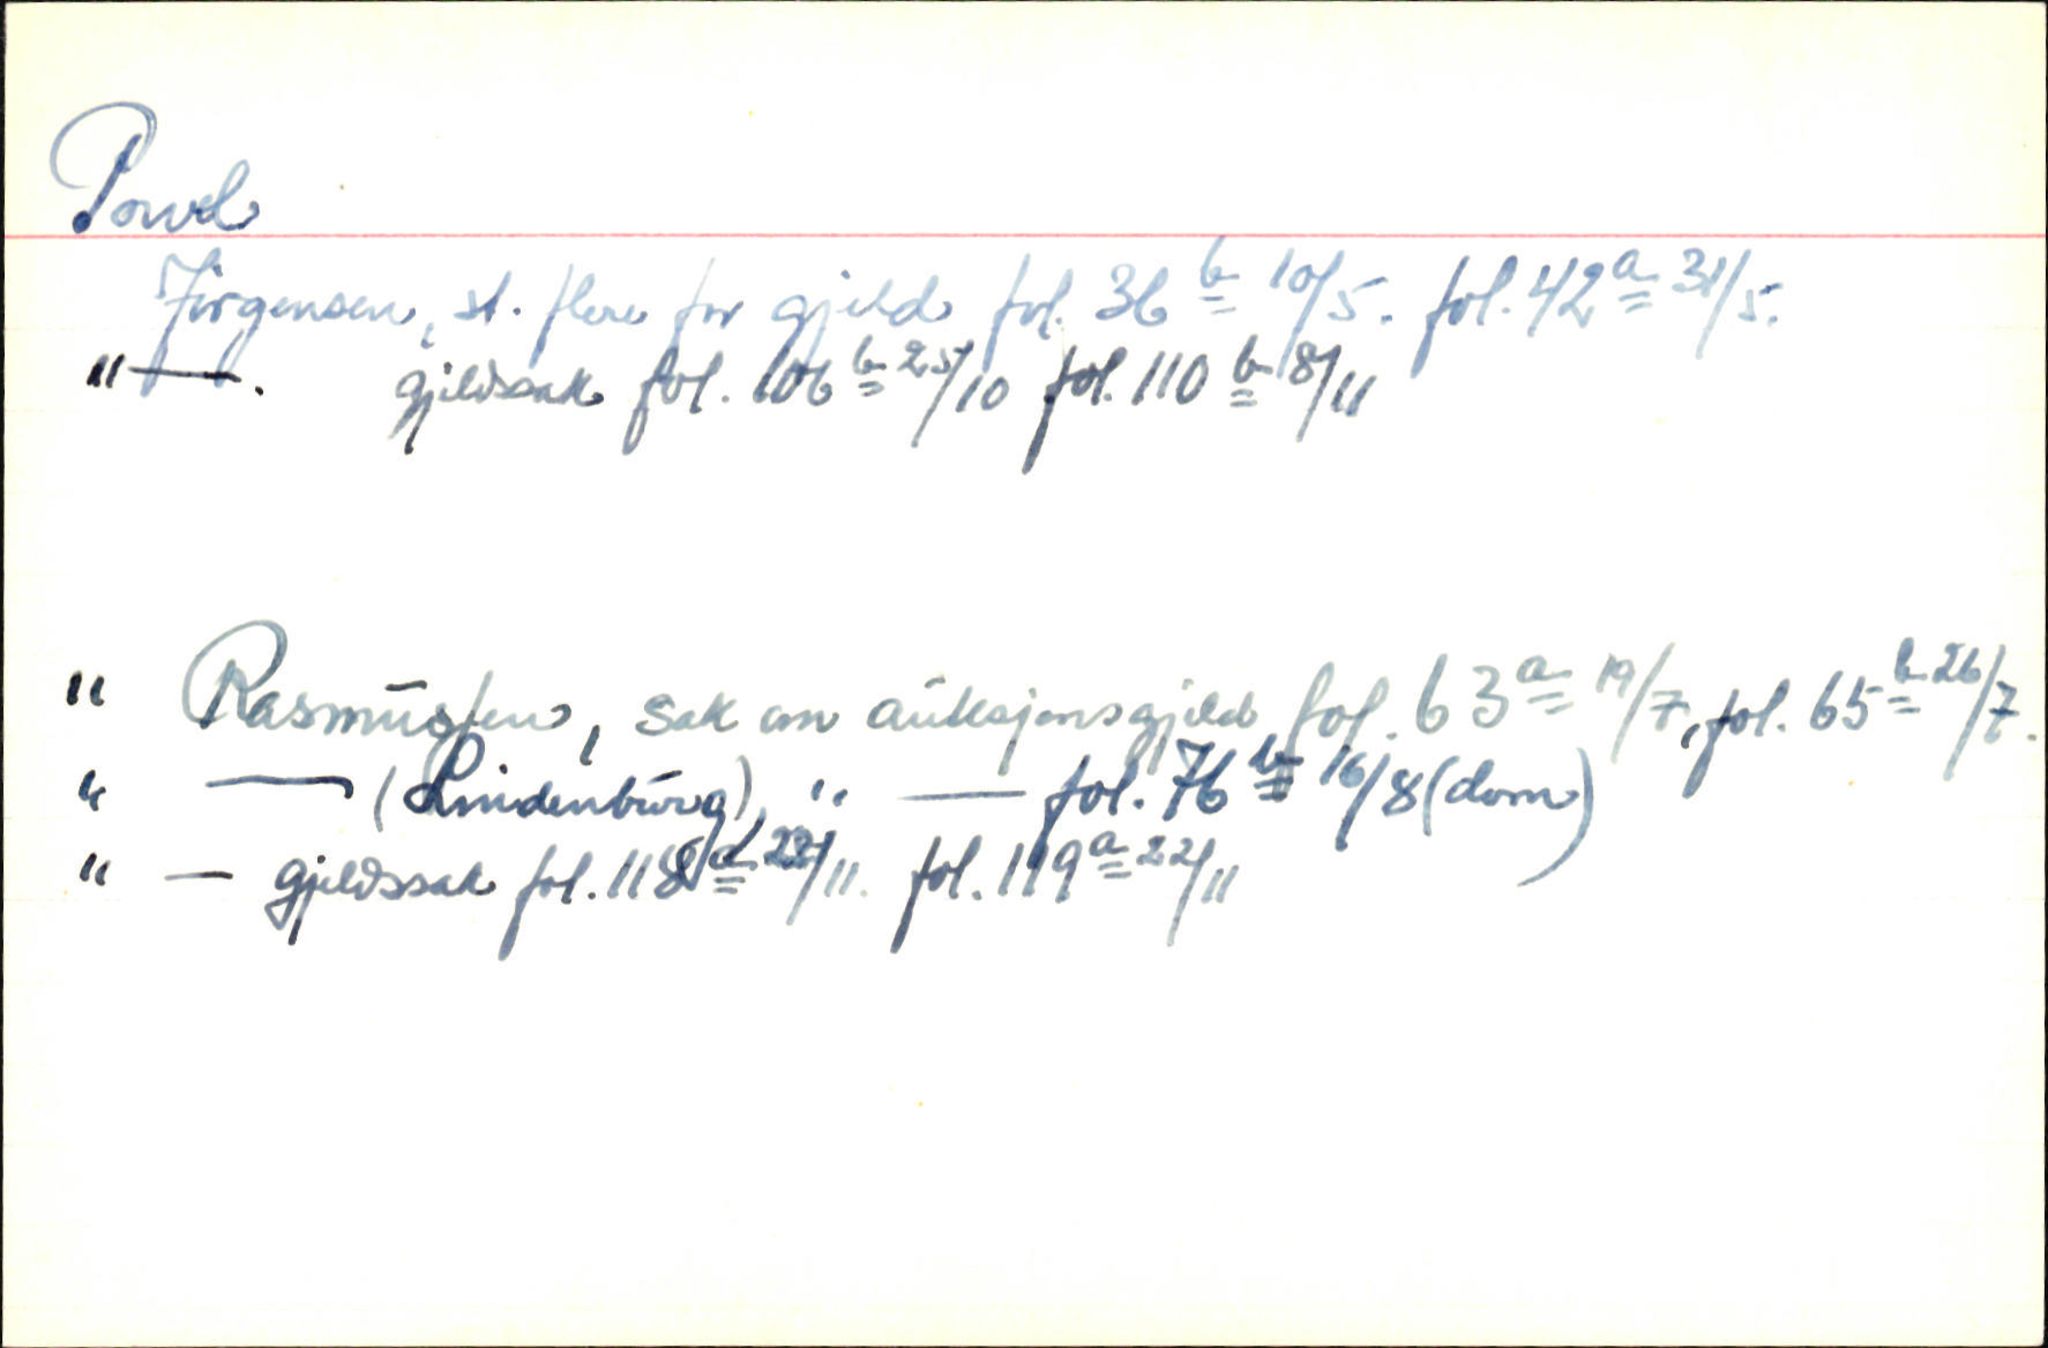 Powel
Jörgensen, st. flere for gjeld fol. 36 b 10/5. fol. 42 a 31/5.
" —. gjeldssak fol. 106 b 25/10 fol. 110 b 8/11
" Rasmussen, sak om auksjonsgjeld fol. 63 a 19/7, fol. 65 b 26/7.
" — (Lindenburg), " — fol. 76 b 16/8 (dom)
" — gjeldssak fol. 118 a 22/11. fol. 119 a 22/11